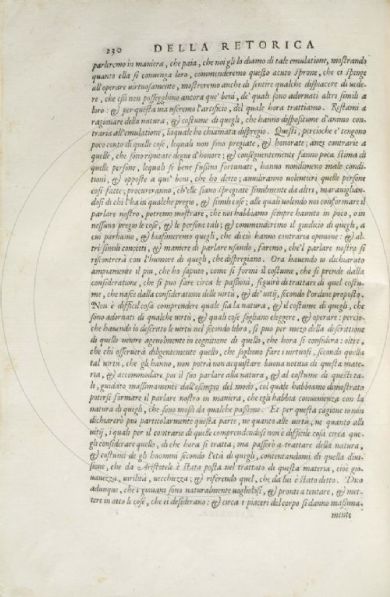 230 DELLA RETORICA
parleremo in maniera, che paia, che noi gli lodiamo di tale emulatione, mostrando
quanto ella si conuenga loro, commenderemo questo acuto sprone, che ci spinge
all'operare virtuosamente, mostreremo anche di sentire qualche dispiacere di uede-
re, che essi non posseghino ancora que' beni, de' quali sono adornati altri simili a
loro: & per questa via useremo l'artificio, del quale hora trattiamo. Restami a
ragionare della natura, & costume di quegli, che hanno dispositione d'animo con-
traria all'emulatione, laquale ho chiamata dispregio. Questi, percioche e' tengono
poco conto di quelle cose, lequali non sono pregiate, & honorate; anzi contrarie a
quelle, che sono riputate degne d'honore; & conseguentemente fanno poca stima di
quelle persone, lequali se bene fussino fortunate, hanno nondimeno male condi-
tioni, & opposte a que' beni, che ho detto; ammireranno volentieri quelle persone
cosi fatte; procureranno, ch'elle siano spregiate similmente da altri, marauiglian-
dosi di chi l'ha in qualche pregio, & simili cose; alle quali uolendo noi conformare il
parlare nostro, potremo mostrare, che noi habbiamo sempre hauuto in poco, o in
nessuno pregio le cose, & le persone tali; & commenderemo il giudicio di quegli, a
cui parliamo, & biasimeremo quegli, che di ciò hanno contraria openione: & al-
tri simili concetti, & maniere di parlare usando, faremo, che'l parlare nostro si
riscontrerà con l'humore di quegli, che dispregiano. Ora hauendo io dichiarato
ampiamente il piu, che ho saputo, come si formi il costume, che si prende dalla
consideratione, che si puo fare circa le passioni, seguirò di trattare di quel costu-
me, che nasce dalla consideratione delle virtù, & de' uitij, secondo l'ordine proposto.
Non è difficil cosa comprendere quale sia la natura, & il costume di quegli, che
sono adornati di qualche virtù, & quali cose sogliano eleggere, & operare: percio-
che hauendo io descritto le virtù nel secondo libro, si puo per mezo della descrittione
di quelle uenire ageuolmente in cognitione di quello, che hora si considera: oltre,
che chi osseruerà diligentemente quello, che sogliono fare i virtuosi, secondo quella
tal virtù, che gli hanno, non potrà non acquistare buona notitia di questa mate-
ria, & accommodare poi il suo parlare alla natura, & al costume di questi ta-
li, guidato massimamente dall'esempio del modo, col quale habbiamo dimostrato
potersi formare il parlare nostro in maniera, che egli habbia conuenienza con la
natura di quegli, che sono mossi da qualche passione. Et per questa cagione io non
dichiarerò piu particolarmente questa parte, ne quanto alle uirtù, ne quanto alli
uitij, i quali per il contrario di quelle comprendendosi non è difficile cosa circa que-
gli considerare quello, di che hora si tratta; ma passerò a trattare della natura,
& costumi de gli huomini secondo l'età di quegli, contentandomi di quella diui-
sione, che da Aristotele è stata posta nel trattato di questa materia, cioè gio-
uanezza, uirilità, uecchiezza; & referendo quel, che da lui è stato detto. Dico
adunque, che i giouani sono naturalmente uogliolosi, & pronti a tentare, & met-
tere in atto le cose, che ei desiderano: & circa i piaceri del corpo si danno massima-
mente